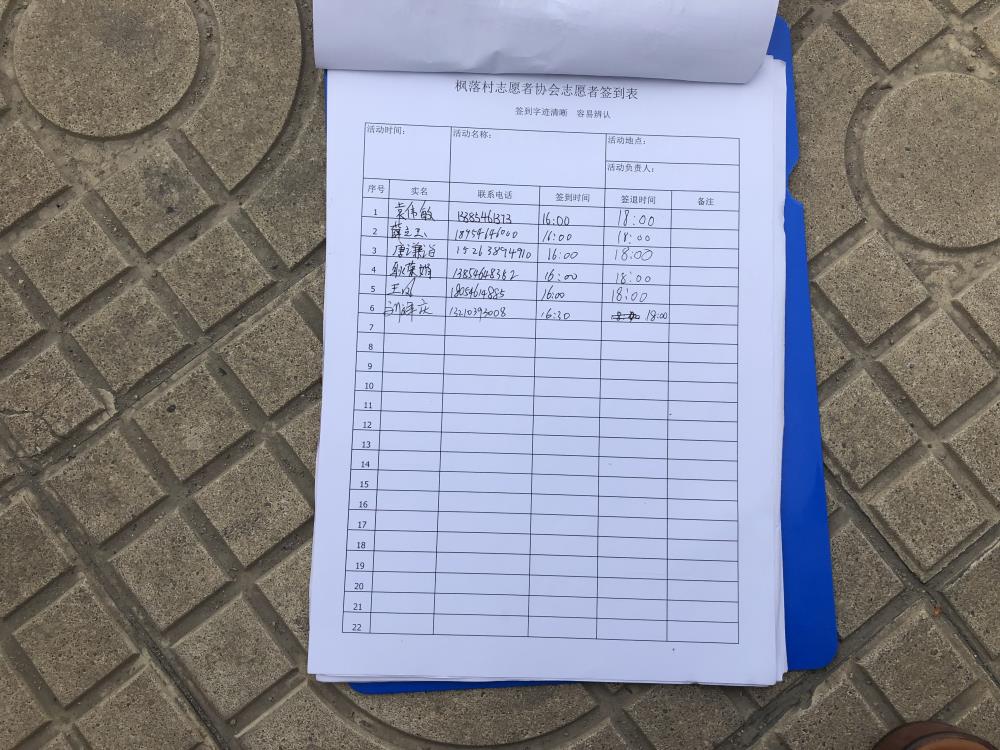 枫落村志愿者协会志愿者签到表
签到字迹清晰 容易辨认
活动时间: 活动名称: 活动地点:
活动负责人:
序号 实名 联系电话 签到时间 签退时间 备注
1 袁伟敏 16:00 18:00
2 薛立杰 18954646000 16:00 18:00
3 15263894910 16:00 18:00
4 13854648382 16:00 18:00
5 王风 18054614885 16:00 18:00
6 13210393008 16:20 18:00
7
8
9
10
11
12
13
14
15
16
17
18
19
20
21
22